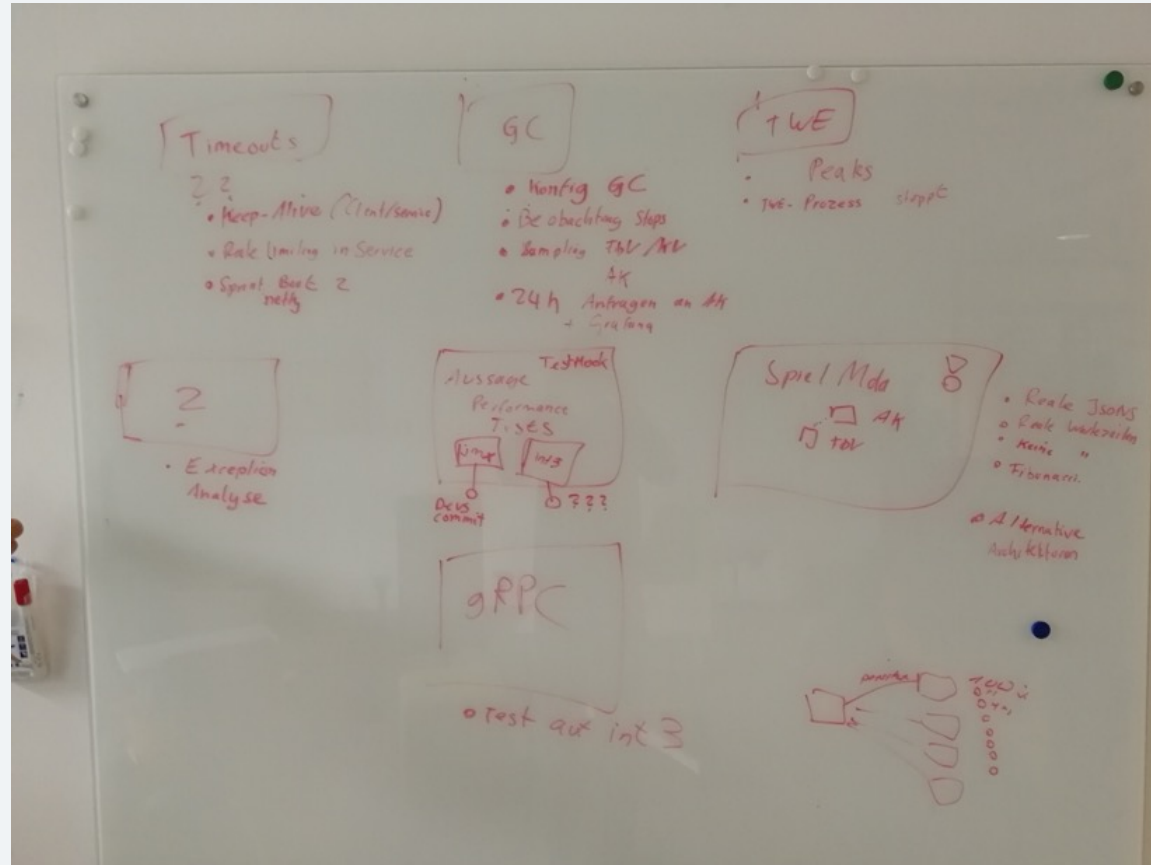 Timeouts
? ?
• Keep-Alive (Client/service)
• Rate limiting in Service
• Boot 2
netty
GC
• Konfig GC
• Beobachtung Stops
• Sampling TBV /
AK
• 24h Anfragen an AK
+ Grafana
TWE
• Peaks
• TWE-Prozess stoppt
?
• Exception
Analyse
TestMock
Aussage
Performance
Tests
Devs
commit
int3
???
Spiel Mda
AK
TBV
• Reale JSONS
• Reale
• Keine "
• Fibonacci
• Alternative
Architekturen
gRPC
• Test auf int 3